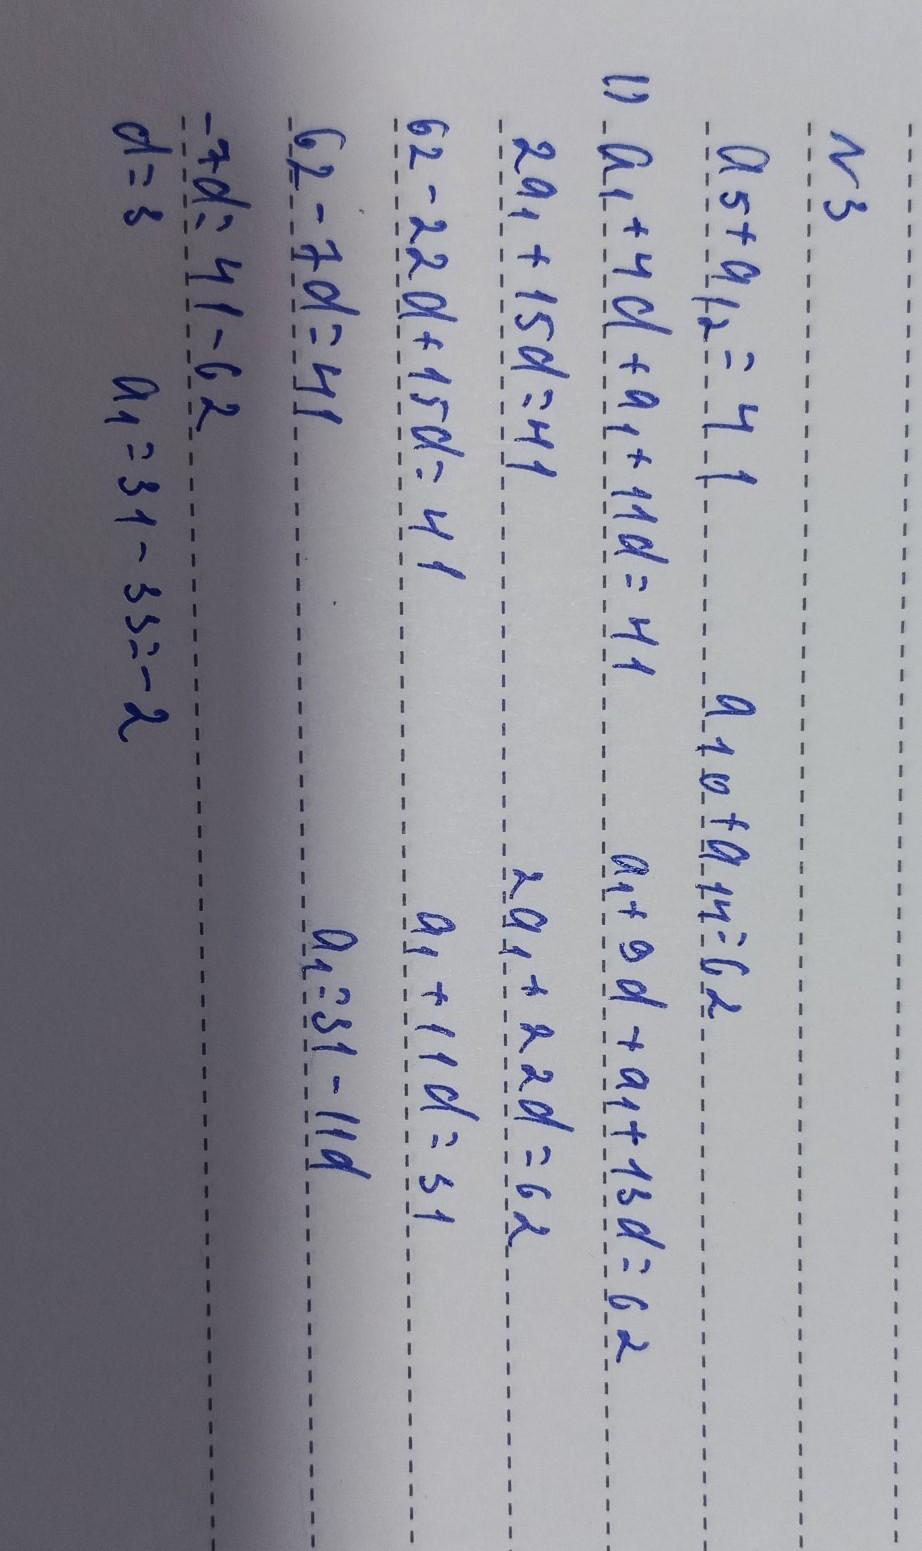 N3
a5+a12=41 a10+a14=62
1) a1+4d+a1+11d=41 a1+9d+a1+13d=62
2a1+15d=41 2a1+22d=62
62-22d+15d=41 a1+11d=31
62-7d=41 a1=31-11d
-7d=41-62
d=3 a1=31-33=-2